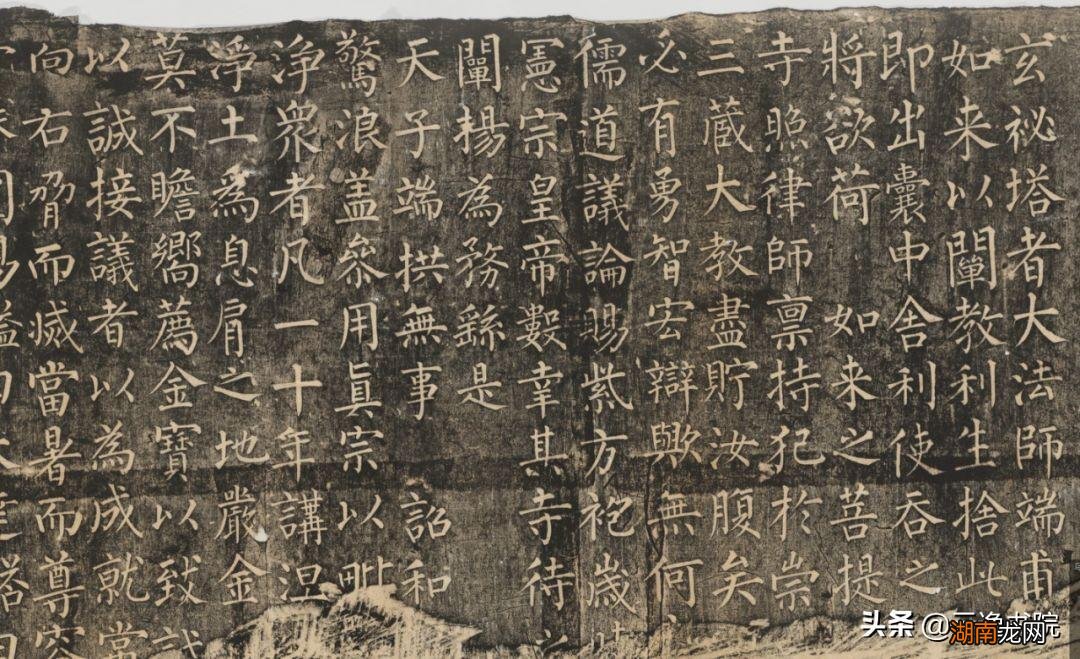 玄秘塔者大法師端甫
如来以闡教利生捨此
即出囊中舍利使吞之
將欲荷 如来之菩提
寺照律師禀持犯於崇
三蔵大教盡貯汝腹矣
必有勇智宏辯歟無何
儒道議論賜紫方袍歲
憲宗皇帝數幸其寺待
闡揚為務繇是
天子端拱無事 詔和
驚浪盖參用真宗以毗
浄衆者凡一十年講涅
浄土為息肩之地嚴金
莫不瞻嚮薦金寶以致
以誠接議者以為成就常
向右脅而滅當暑而尊容
头条 @
湖南龙网